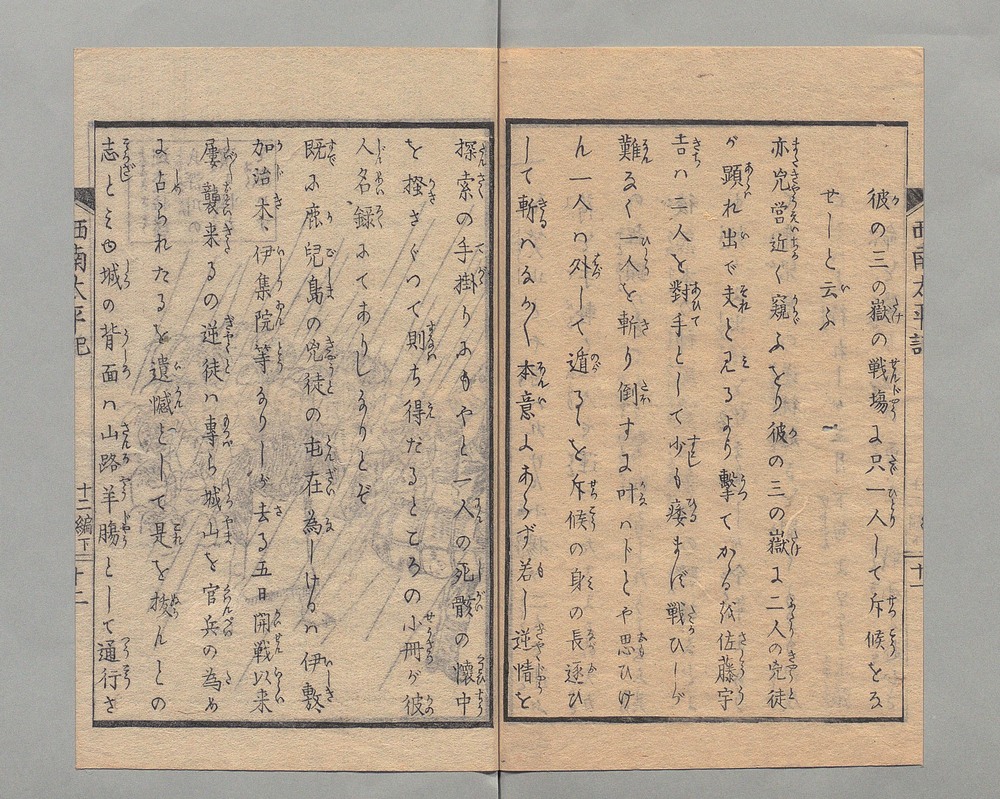 彼の三の嶽の戦場に只一人して斥候をな
せしと云ふ
亦兇営近く窺ふをり彼の三の嶽に二人の兇徒
が顕れ出で夫と見るより撃てかゝるを佐藤宇
吉ハ二人を對手として少も痿まず戦ひしが
難なく一人を斬り倒すに叶ハじとや思ひけ
ん一人ハ外して遁るを斥候の身の長逐ひ
して斬ハるかく本意にあらず若し逆情を
探索の手掛りにもやと一人の死骸の懐中
を掻さぐつて則ち得たるところの小冊が彼
人名録にてありしなりとぞ
既に鹿児島の兇徒の屯在為しけるハ伊敷、
加治木、伊集院等なりしが去る五日開戦以来
屡襲来るの逆徒ハ専ら城山を官兵の為め
に占られたるを遺憾として是を抜んとの
志とミゆ城の背面ハ山路羊腸として通行さ
西南太平記
十二編下
十二
西南太平記
十一